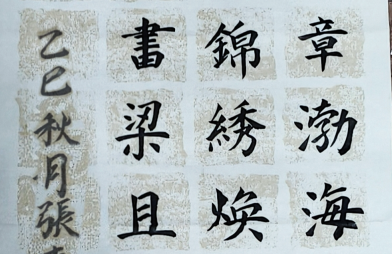 章渤海
錦綉煥
畫梁且
乙巳秋月張